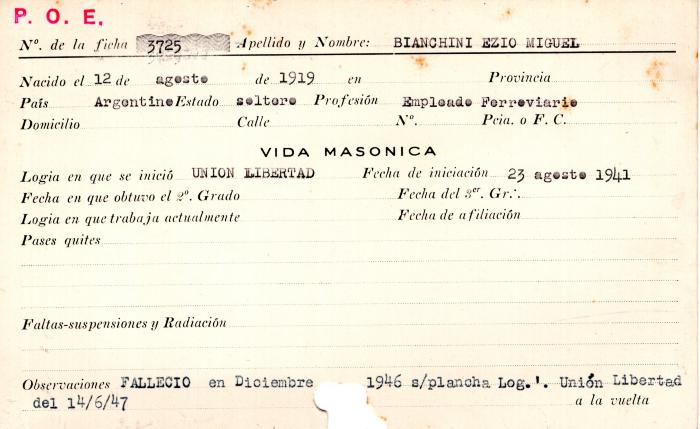 P. O. E.
Nº. de la ficha 3725 Apellido y Nombre: BIANCHINI EZIO MIGUEL
Nacido el 12 de agosto de 1919 en Provincia
País Argentino Estado soltero Profesión Empleado Ferroviario
Domicilio Calle Nº. Pcia. o F. C.
VIDA MASONICA
Logia en que se inició UNION LIBERTAD Fecha de iniciación 23 agosto 1941
Fecha en que obtuvo el 2º. Grado Fecha del 3er. Gr∴
Logia en que trabaja actualmente Fecha de afiliación
Pases quites
Faltas-suspensiones y Radiación
Observaciones FALLECIO en Diciembre 1946 s/plancha Log.'. Unión Libertad
del 14/6/47 a la vuelta